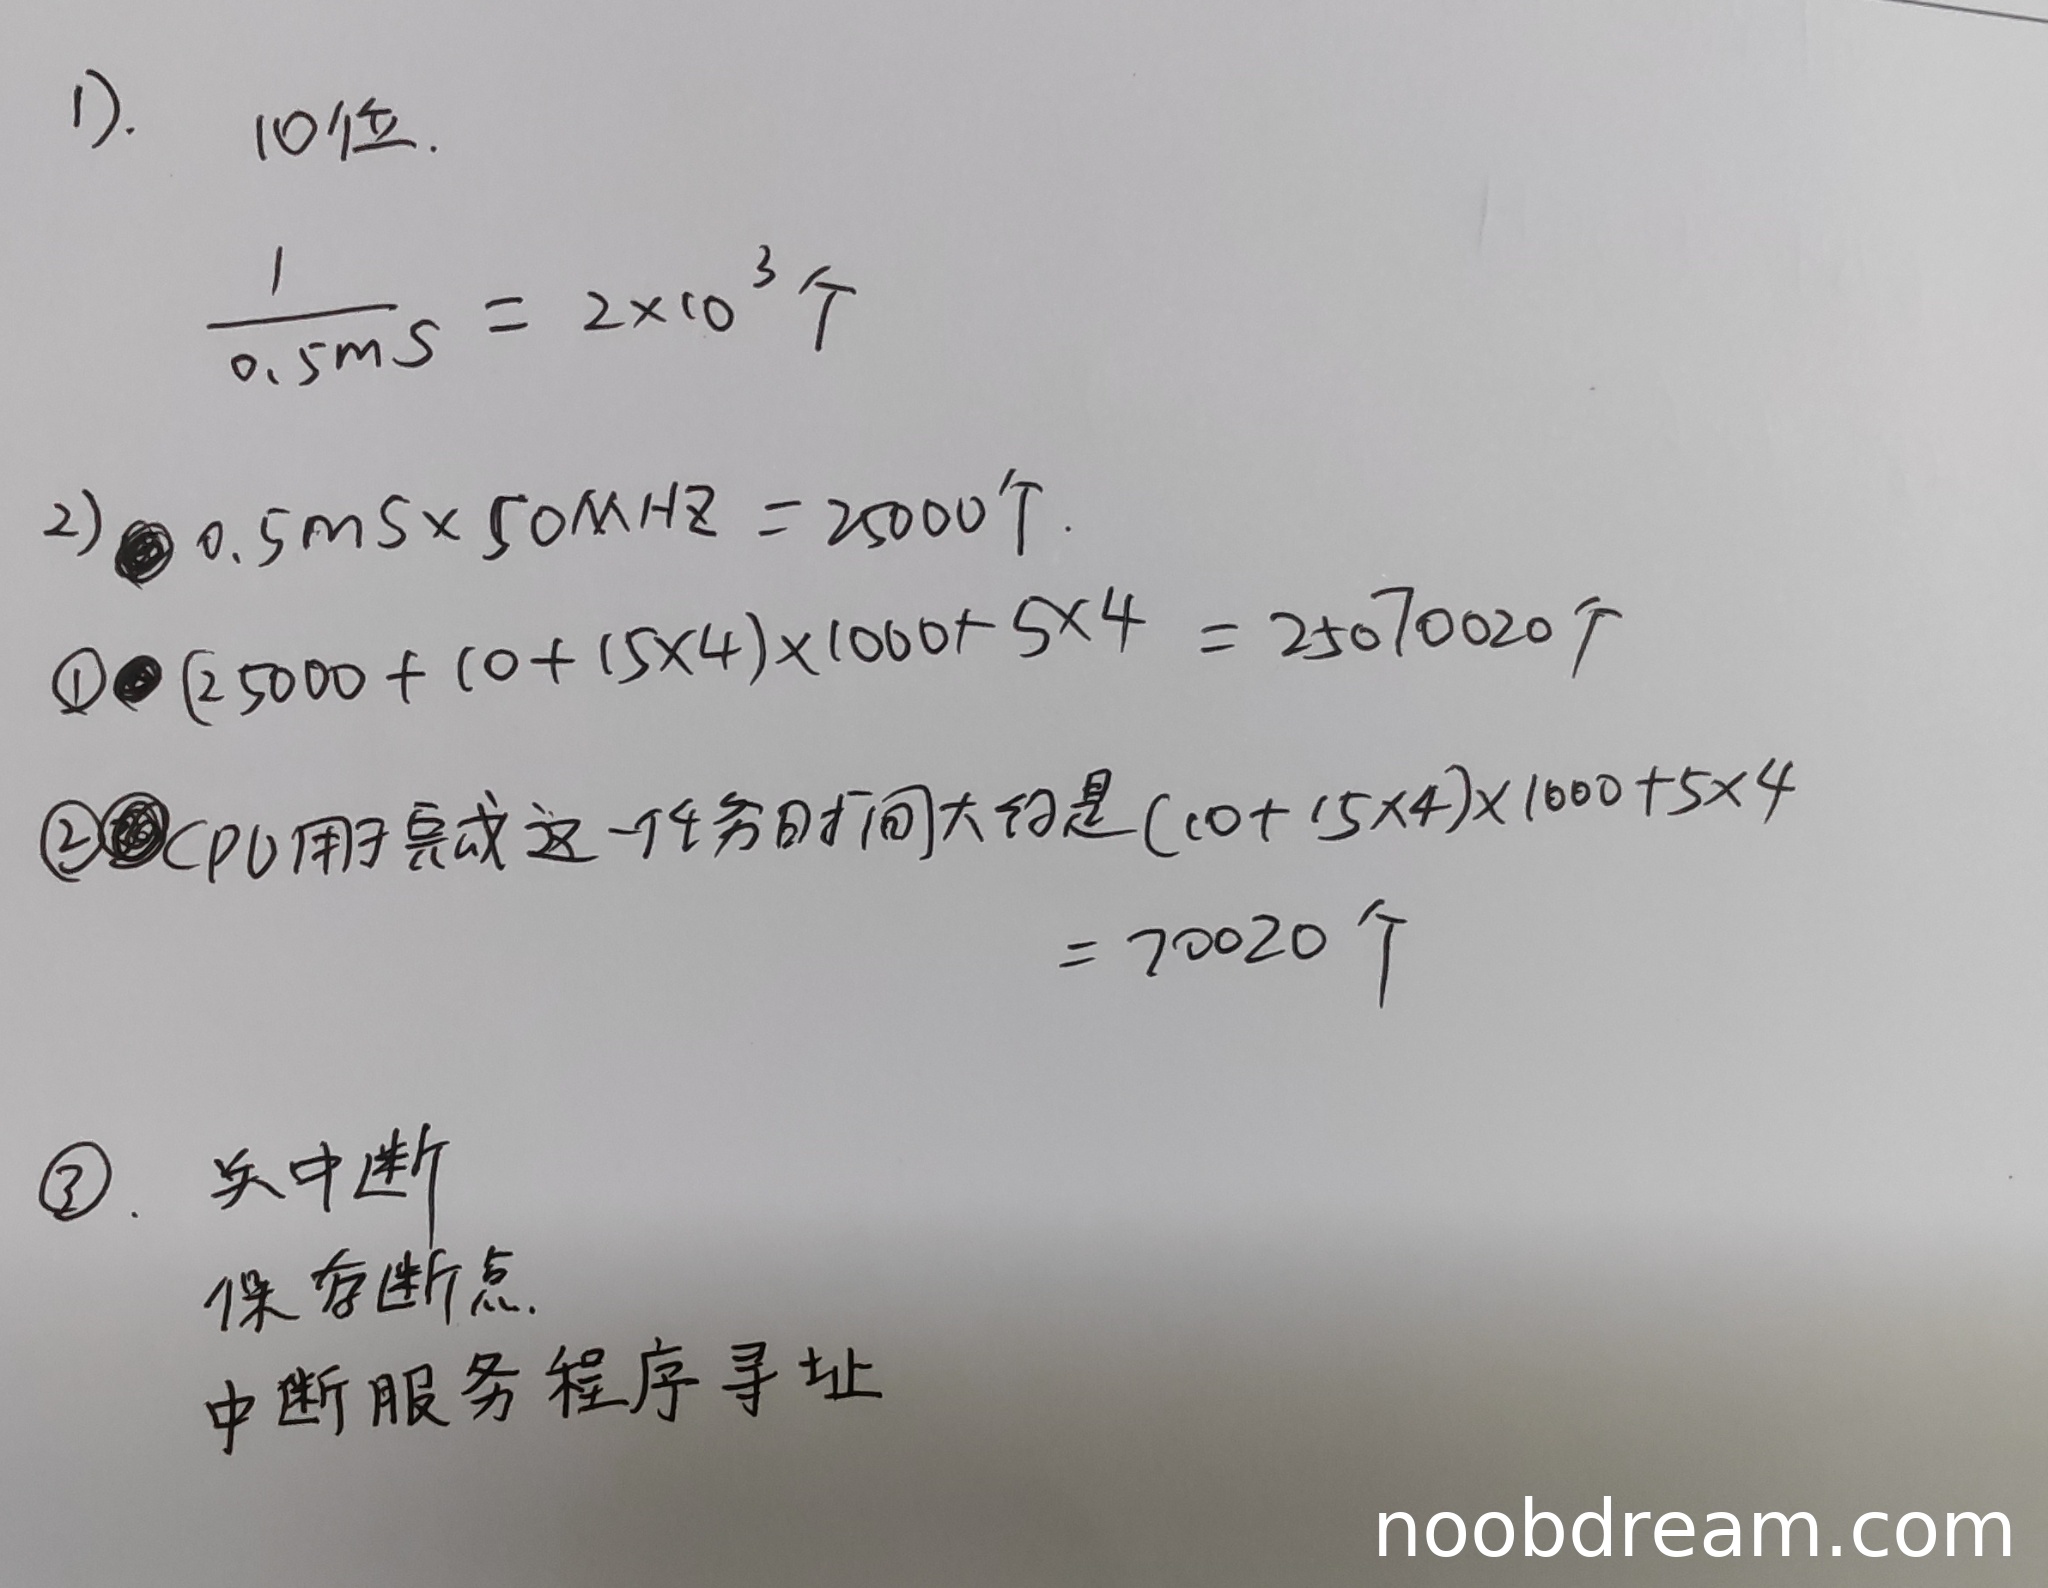 1). 10位.
1/0.5mS = 2×10³个
2) 0.5mS×50MHZ = 25000个.
① (25000+10+15×4)×1000+5×4 = 25070020个
② CPU用于完成这一任务时间大约是(10+15×4)×1000+5×4
= 70020个
③. 关中断
保存断点.
中断服务程序寻址
noobdream.com